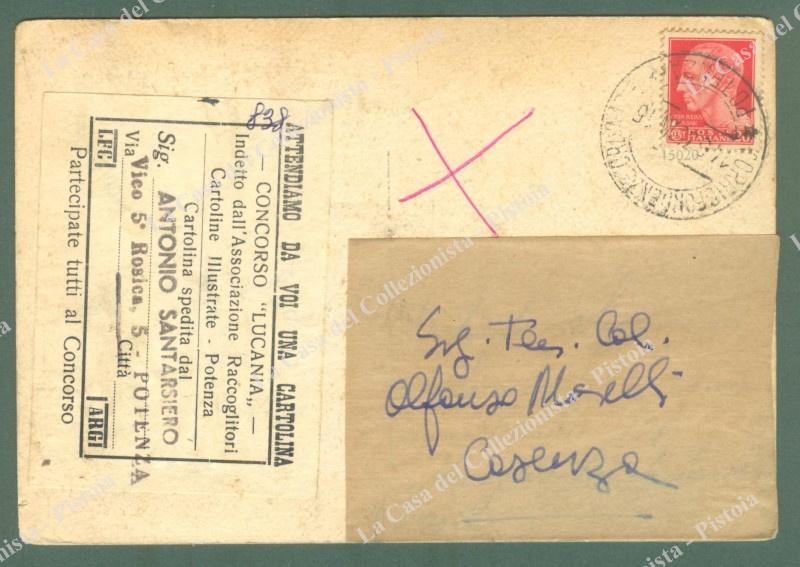 838
ATTENDIAMO DA VOI UNA CARTOLINA
— CONCORSO "LUCANIA„ —
Indetto dall'Associazione Raccoglitori
Cartoline Illustrate - Potenza
Cartolina spedita dal
Sig. ANTONIO SANTARSIERO
Via Vico 5° Rosica, 5 - POTENZA
Città
LFC ARGI
Partecipate tutti al Concorso
POSTE
ITALIANE
15020
Sig. Ten. Col.
Alfonso Morelli
Cosenza
La Casa del Collezionista - Pistoia